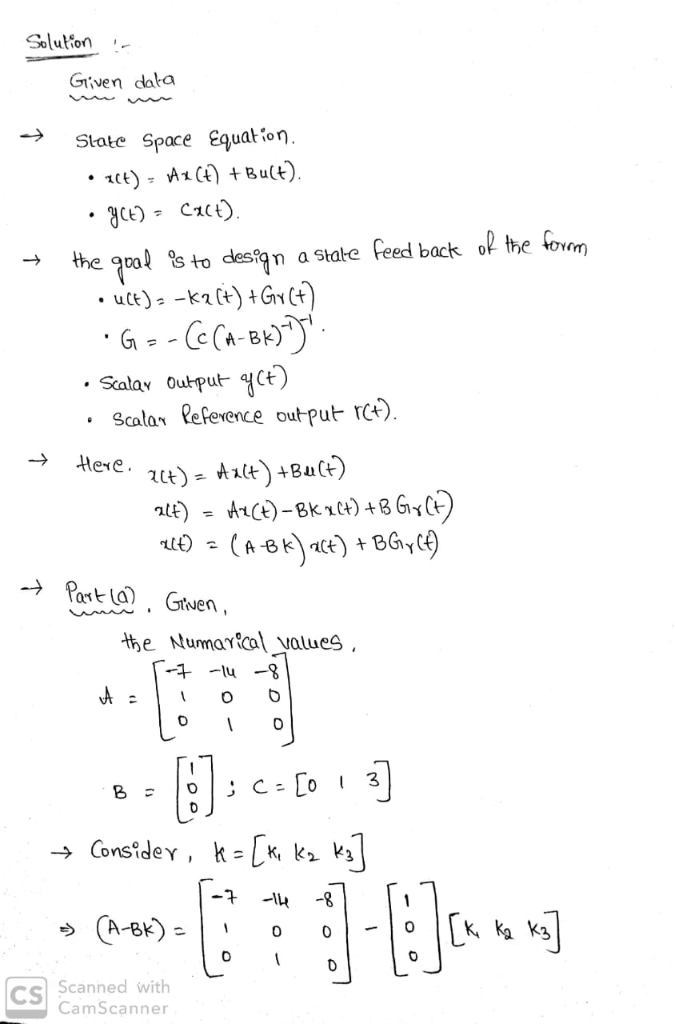 Solution :-
Given data
→ State Space Equation.
• x(t) = Ax(t) + Bu(t).
• y(t) = Cx(t).
→ the goal is to design a state feed back of the form
• u(t) = -Kx(t) + Gr(t)
• G = - (C(A-BK)⁻¹)⁻¹.
• Scalar output y(t)
• Scalar Reference output r(t).
→ Here. x(t) = Ax(t) + Bu(t)
x(t) = Ax(t) - BKx(t) + BGr(t)
x(t) = (A-BK) x(t) + BGr(t)
→ Part (a). Given,
the Numarical values,
A = [-7 -14 -8
1 0 0
0 1 0]
B = [1 0 0] ; C = [0 1 3]
→ Consider, K = [K₁ K₂ K₃]
⇒ (A-BK) = [-7 -14 -8
1 0 0
0 1 0] - [1 0 0] [K₁ K₂ K₃]
CS Scanned with
CamScanner